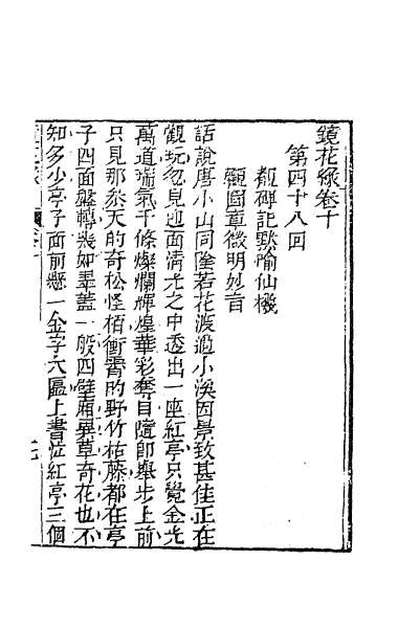 鏡花緣卷十
第四十八回
觀碑記默喻仙機
觀圖章微明妙旨
話說唐小山同陰若花渡過小溪因景致甚佳正在
觀玩忽見迎面清光之中透出一座紅亭只覺金光
萬道瑞氣千條燦爛輝煌華彩奪目隨即舉步上前
只見那參天的奇松怪栢衝霄的野竹枯藤都在亭
子四面盤轉裝如華蓋一般四壁廂異草奇花也不
知多少亭子面前懸一金字大匾上書泣紅亭三個